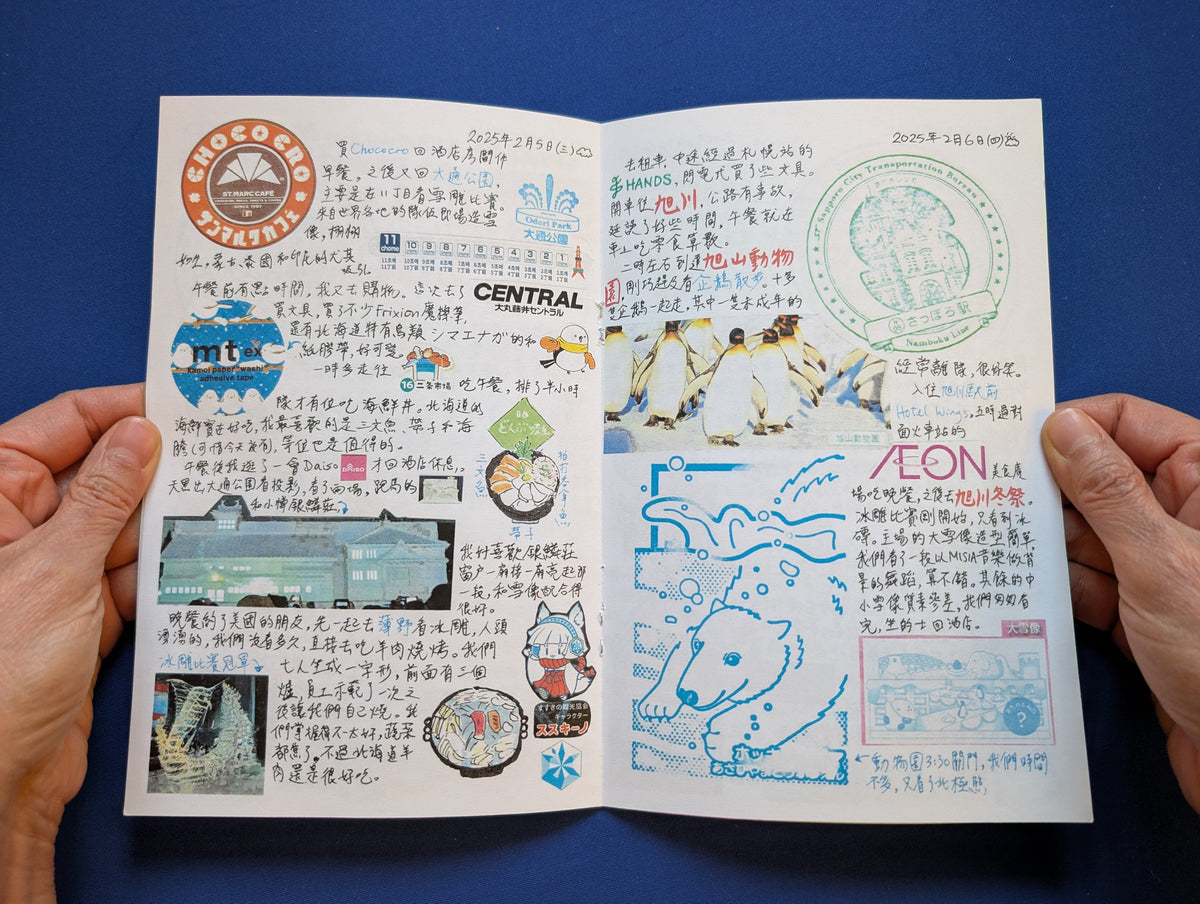 2025年2月5日(三)
CHOCOCRO
ST.MARC CAFÉ
SINCE 1987
サンマルクカフェ
買Chococro回酒店房間作
早餐,之後又回大通公園,
主要是在11丁目看雪雕比賽。
來自世界各地的隊伍即場造雪
像,栩栩
如生,蒙古、泰國和印尼的尤其
吸引。
Odori Park
大通公園
11 chome 10 9 8 7 6 5 4 3 2 1
11丁目 10丁目 9丁目 8丁目 7丁目 6丁目 5丁目 4丁目 3丁目 2丁目 1丁目
午餐前有點時間,我又去購物。這次去了
CENTRAL
大丸藤井セントラル
買文具,買了不少Frixion魔擦筆,
還有北海道特有鳥類シマエナガ的和
紙膠帶,好可愛。
mt ex
kamoi paper washi
adhesive tape
一時多走往
16 二条市場
吃午餐,排了半小時
隊才有位吃海鮮丼。北海道的
海鮮實在好吃,我最喜歡的是三文魚、帶子和海
膽(可惜今天沒有),等位也是值得的。
三文魚
帶子
午餐後我逛了一會Daiso
DAISO
才回酒店休息。
天黑出大通公園看投影,看了兩場,跑馬的
和小樽銀鱗莊
我較喜歡銀鱗莊
窗户一扇接一扇亮起那
一段,和雪像配合得
很好。
晚餐約了美國的朋友,先一起去薄野看冰雕,人頭
湧湧的,我們沒看多久,直接去吃羊肉燒烤。我們
冰雕比賽冠軍
七人坐成一字形,前面有三個
爐,員工示範了一次之
後讓我們自己燒。我
們掌握得不太好,蔬菜
都焦了。不過北海道羊
肉還是很好吃。
すすきの観光協会
キャラクター
ススキーノ
2025年2月6日(四)
去租車,中途經過札幌站的
HANDS,閃電式買了些文具。
開車往旭川,公路有事故,
延誤了好些時間,午餐就在
車上吃零食算數。
二時左右到達旭山動物
園,剛巧趕及看企鵝散步。十多
隻企鵝一起走,其中一隻未成年的
Sapporo City Transportation Bureau
さっぽろ駅
Namboku Line
旭山動物園
經常離隊,很好笑。
入住旭川駅前
Hotel Wings,五時過對
面火車站的
ÆON
美食廣
場吃晚餐,之後去旭川冬祭。
冰雕比賽剛開始,只看到冰
磚。主場的大雪像造型簡單,
我們看了一段以MISIA音樂做背
景的舞蹈,算不錯。其餘的中
小雪像質素參差,我們匆匆看
完,坐的士回酒店。
大雪像
?
←動物園3:30關門,我們時間
不多,只看了北極熊